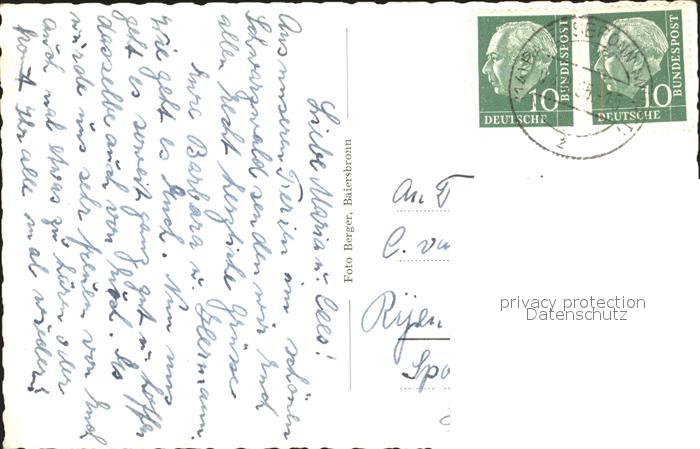 Liebe Maria u. Cees!
Aus unseren Ferien im schönen
Schwarzwald senden wir Euch
allen recht herzliche Grüsse
Eure Barbara u. Hermann.
Wie geht es Euch. Nun uns
geht es soweit ganz gut u. hoffen
dasselbe auch von Euch. Es
würde uns sehr freuen von Euch
auch mal etwas zu hören oder
kommt Ihr alle mal wieder?
Foto Berger, Baiersbronn
10
BUNDESPOST
DEUTSCHE
10
BUNDESPOST
DEUTSCHE
An
C. v
Rijen
Spo
privacy protection
Datenschutz